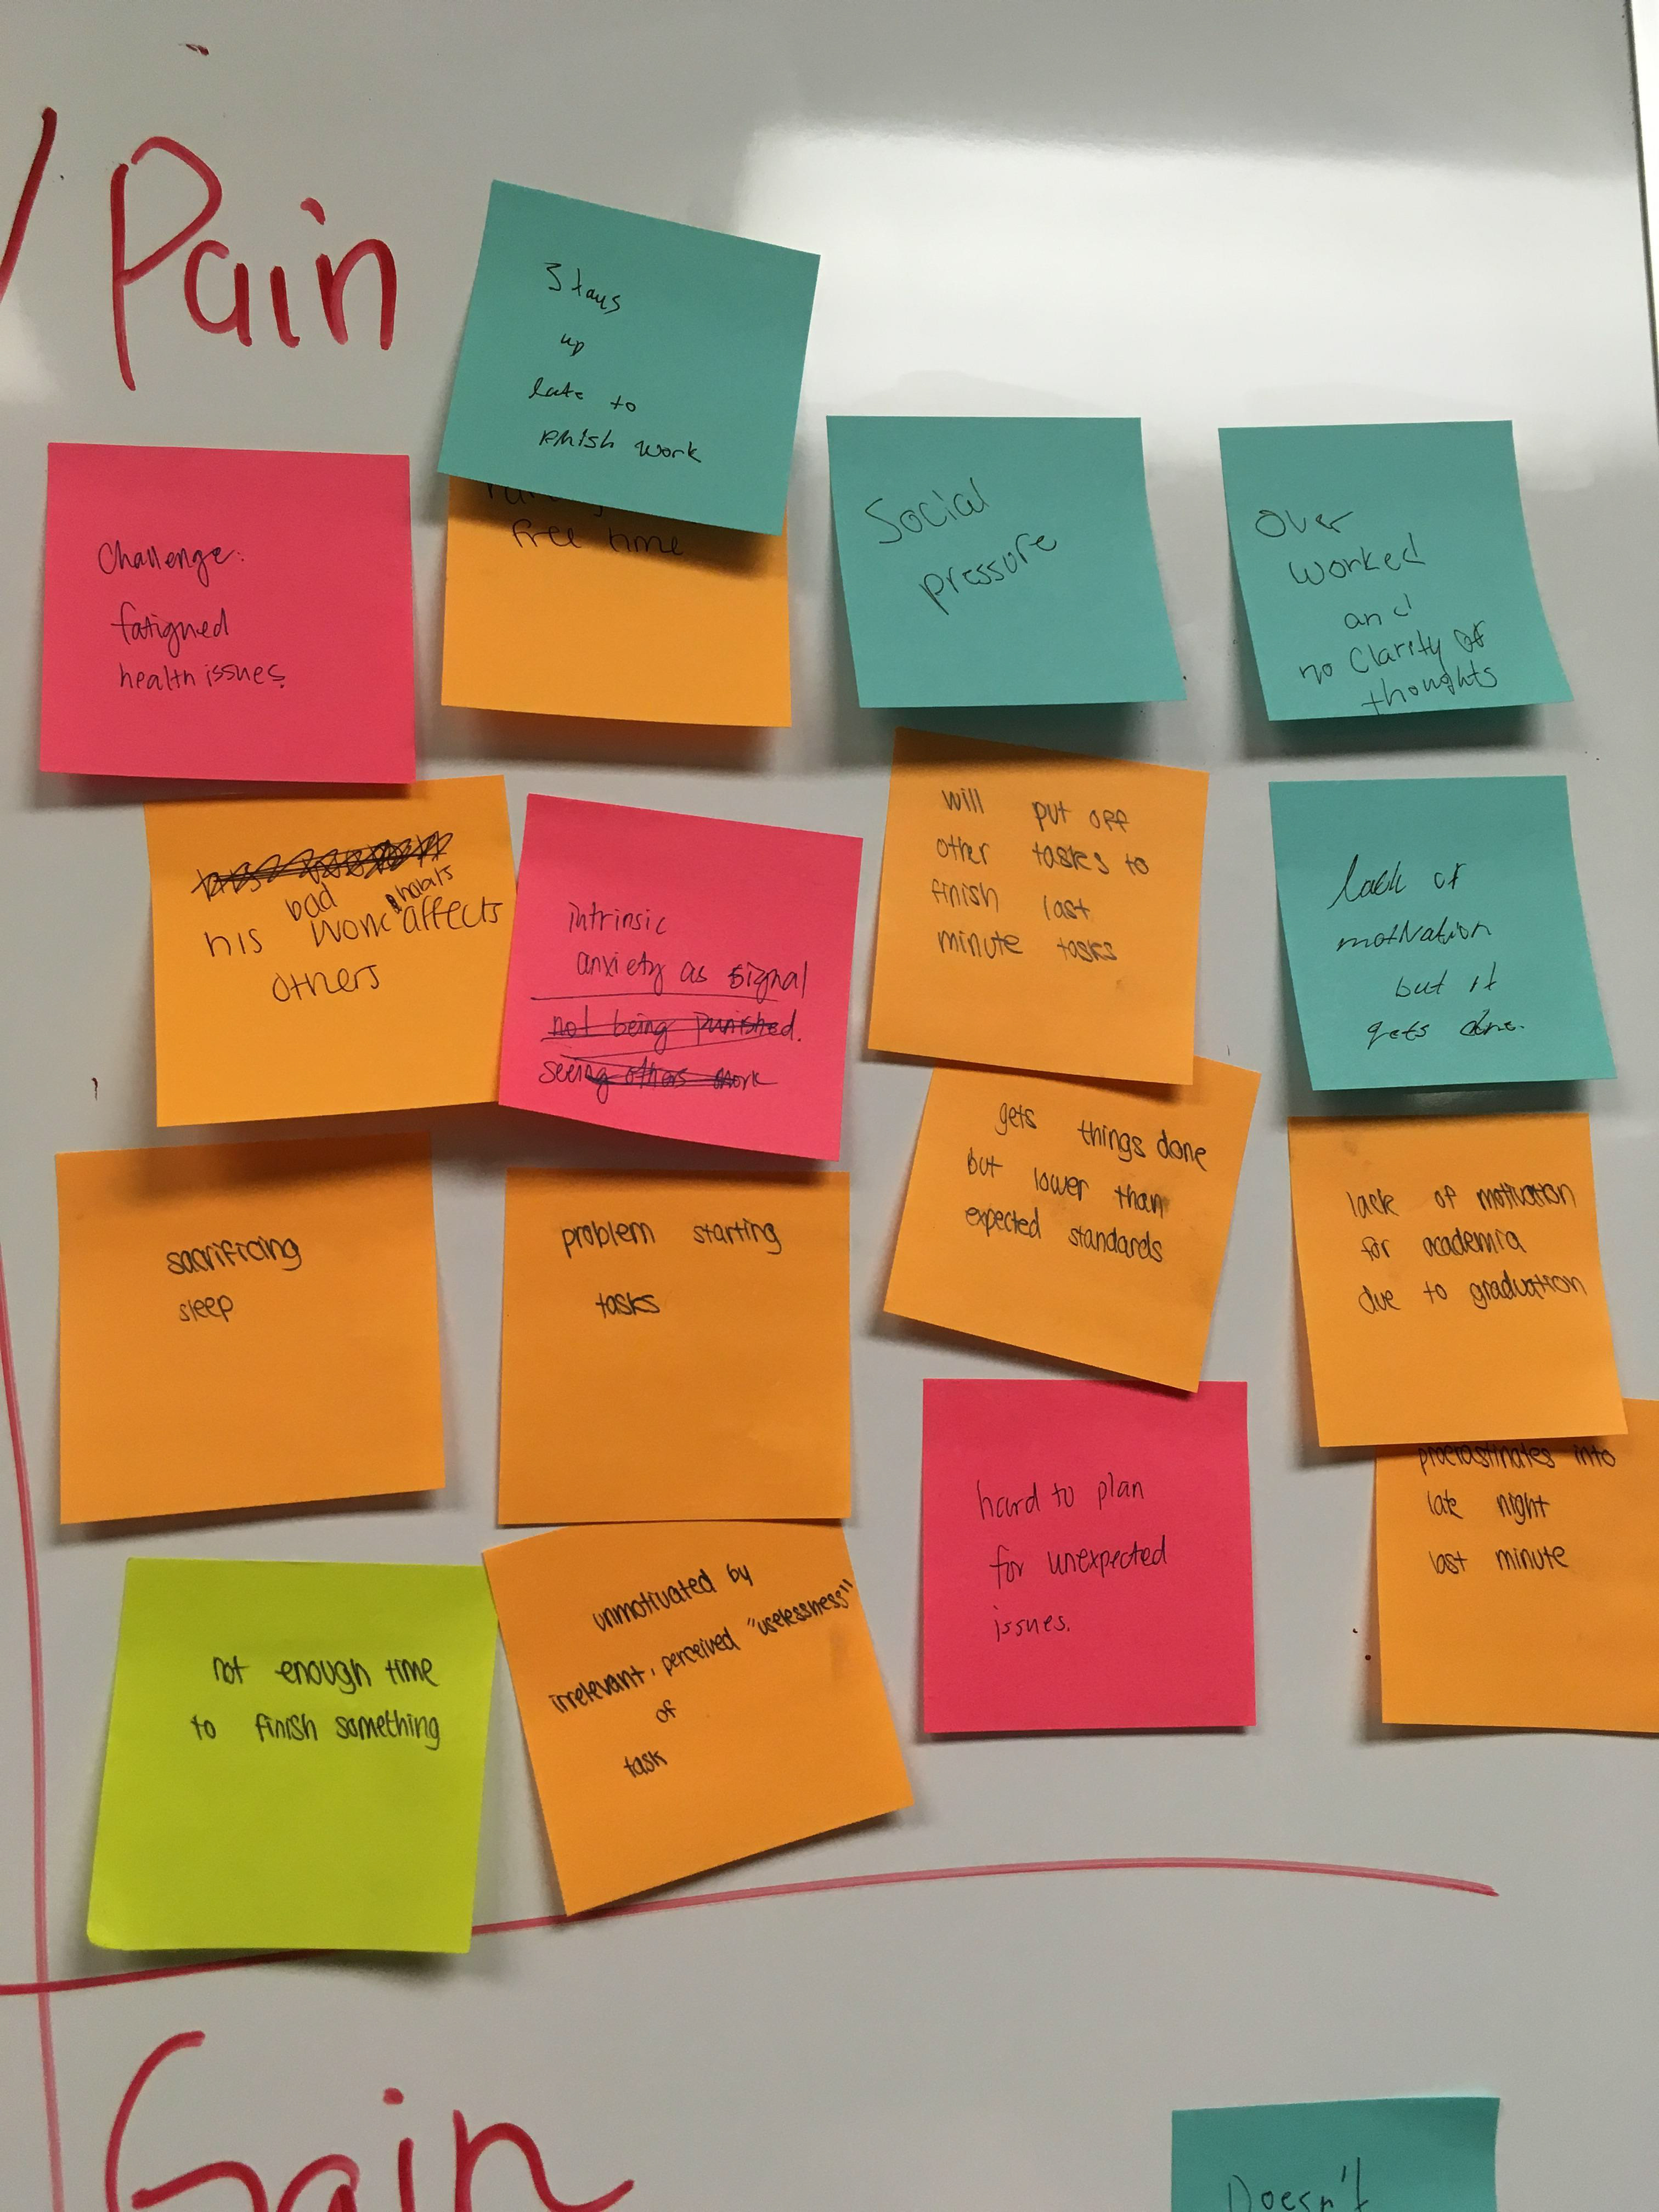 Pain
Stays
up
late to
finish work
free time
Challenge:
fatigued
health issues.
Social
pressure
Over
worked
and
no Clarity of
thoughts
bad habits
his work affects
others
intrinsic
anxiety as signal
not being punished.
seeing others work
will put off
other tasks to
finish last
minute tasks
lack of
motivation
but it
gets done.
sacrificing
sleep
problem starting
tasks
gets things done
but lower than
expected standards
lack of motivation
for academia
due to graduation
procrastinates into
late night
last minute
hard to plan
for unexpected
issues.
not enough time
to finish something
unmotivated by
irrelevant, perceived "uselessness"
of
task
Gain
Doesn't